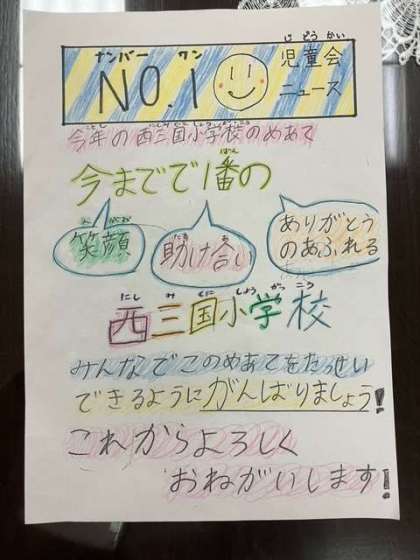 ナンバー ワン
NO.1
じどうかい
児童会
ニュース
今年の西三国小学校のめあて
今までで1番の
笑顔
助け合い
ありがとう
のあふれる
にし み くに しょう がっ こう
西三国小学校
みんなでこのめあてをたっせい
できるようにがんばりましょう!
これからよろしく
おねがいします!